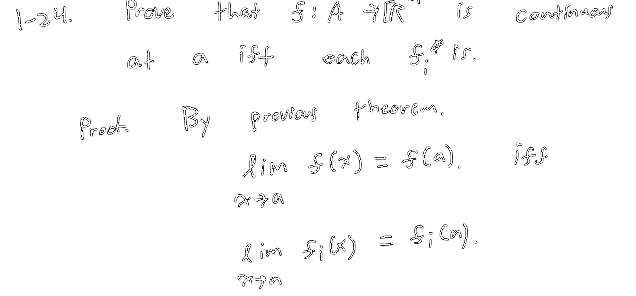 1-24. Prove that f: A → ℝ is continuous
at a iff each f_i is.
Proof. By previous theorem,
lim f(x) = f(a). iff
x→a
lim f_i(x) = f_i(a).
x→a